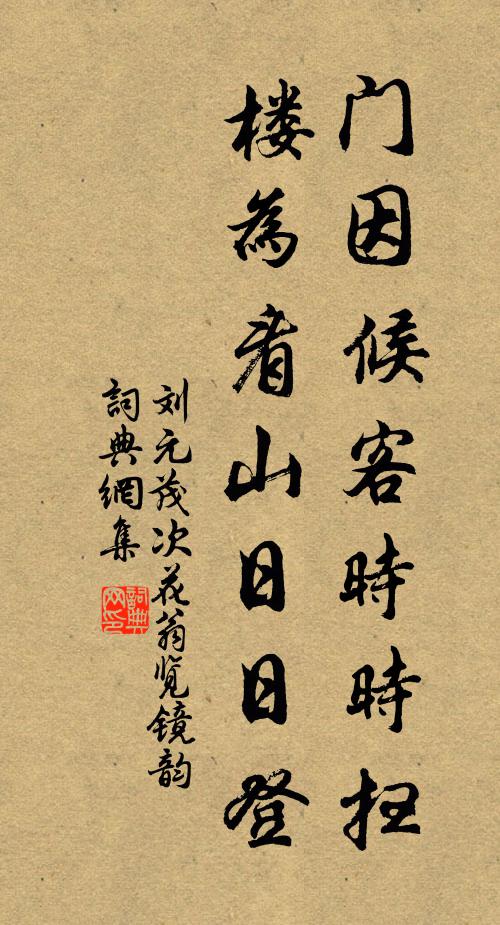 门因候客時時扫
楼為看山日日登
刘元茂次花翁览镜韵
詞典網集
詞典网印